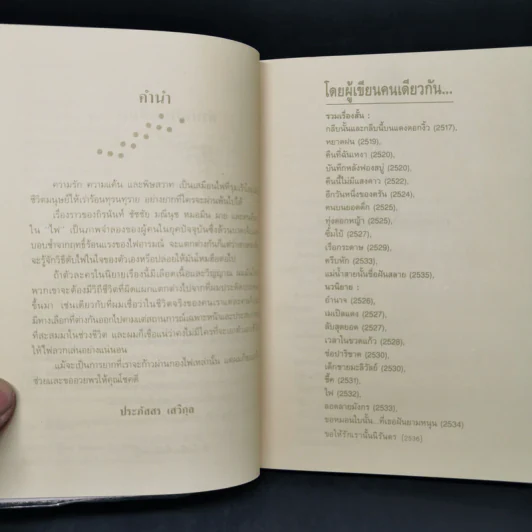 คำนำ
ความรัก ความแค้น และพิษสวาท เป็นเสมือนไฟที่รุมเร้า
ชีวิตมนุษย์ให้เร่าร้อนทุรนทุราย อย่างยากที่ใครจะผ่านพ้นไปได้
เรื่องราวของกิรนันท์ ชัชชัย มณีนุช หมอมิ่น มาย และ
ใน "ไฟ" เป็นภาพจำลองของผู้คนในยุคปัจจุบันซึ่งล้วน
บอบช้ำจากฤทธิ์ร้อนแรงของไฟอารมณ์ จะแตกต่างกันก็
จะรู้จักวิธีดับไฟในใจของตัวเองหรือปล่อยให้มันไหม้
ถ้าตัวละครในนิยายเรื่องนี้มีเลือดเนื้อและวิญญาณ
พวกเขาจะต้องมีวิถีชีวิตที่ผิดแผกแตกต่างไปจากที่ผม
ขึ้นมา เช่นเดียวกับที่ผมเชื่อว่าในชีวิตจริงของคนเรา
มีทางเลือกที่ต่างกันออกไปตามแต่สถานการณ์เฉพาะหน้าและ
ที่สะสมมาในช่วงชีวิต และผมก็เชื่อแน่ว่าคงไม่มีใครที่จะ
ให้ไฟลวกเล่นอย่างแน่นอน
แม้จะเป็นการยากที่เราจะก้าวผ่านกองไฟเหล่านั้น
ช่วยและขออวยพรให้คุณโชคดี
ประภัสสร เสวิกุล
โดยผู้เขียนคนเดียวกัน...
รวมเรื่องสั้น :
กลีบนั้นและกลีบนี้บนแดงดอกงิ้ว (2517),
หยาดฝน (2519),
คืนที่ฉันเหงา (2520),
บันทึกหลังฟองสบู่ (2520),
คืนนี้ไม่มีแสงดาว (2522),
อีกวันหนึ่งของตรัน (2523),
คนบนยอดตึก (2525),
ทุ่งดอกหญ้า (2525),
ขี้ผึ้งใบ้ (2527),
เรือกระดาษ (2529),
ครีบหัก (2533),
แม่น้ำสายนั้นชื่อฝันสลาย (2535),
นวนิยาย :
อำนาจ (2526),
เมเปิลแดง (2527),
ลับสุดยอด (2527),
เวลาในขวดแก้ว (2528),
ช่อปาริชาต (2530),
เด็กชายมะลิวัลย์ (2530),
ชี้ค (2531),
ไฟ (2532),
ลอดลายมังกร (2533),
ขอหมอนใบนั้น...ที่เธอฝันยามหนุน (2534)
ขอให้รักเรานั้นนิรันดร (2536)